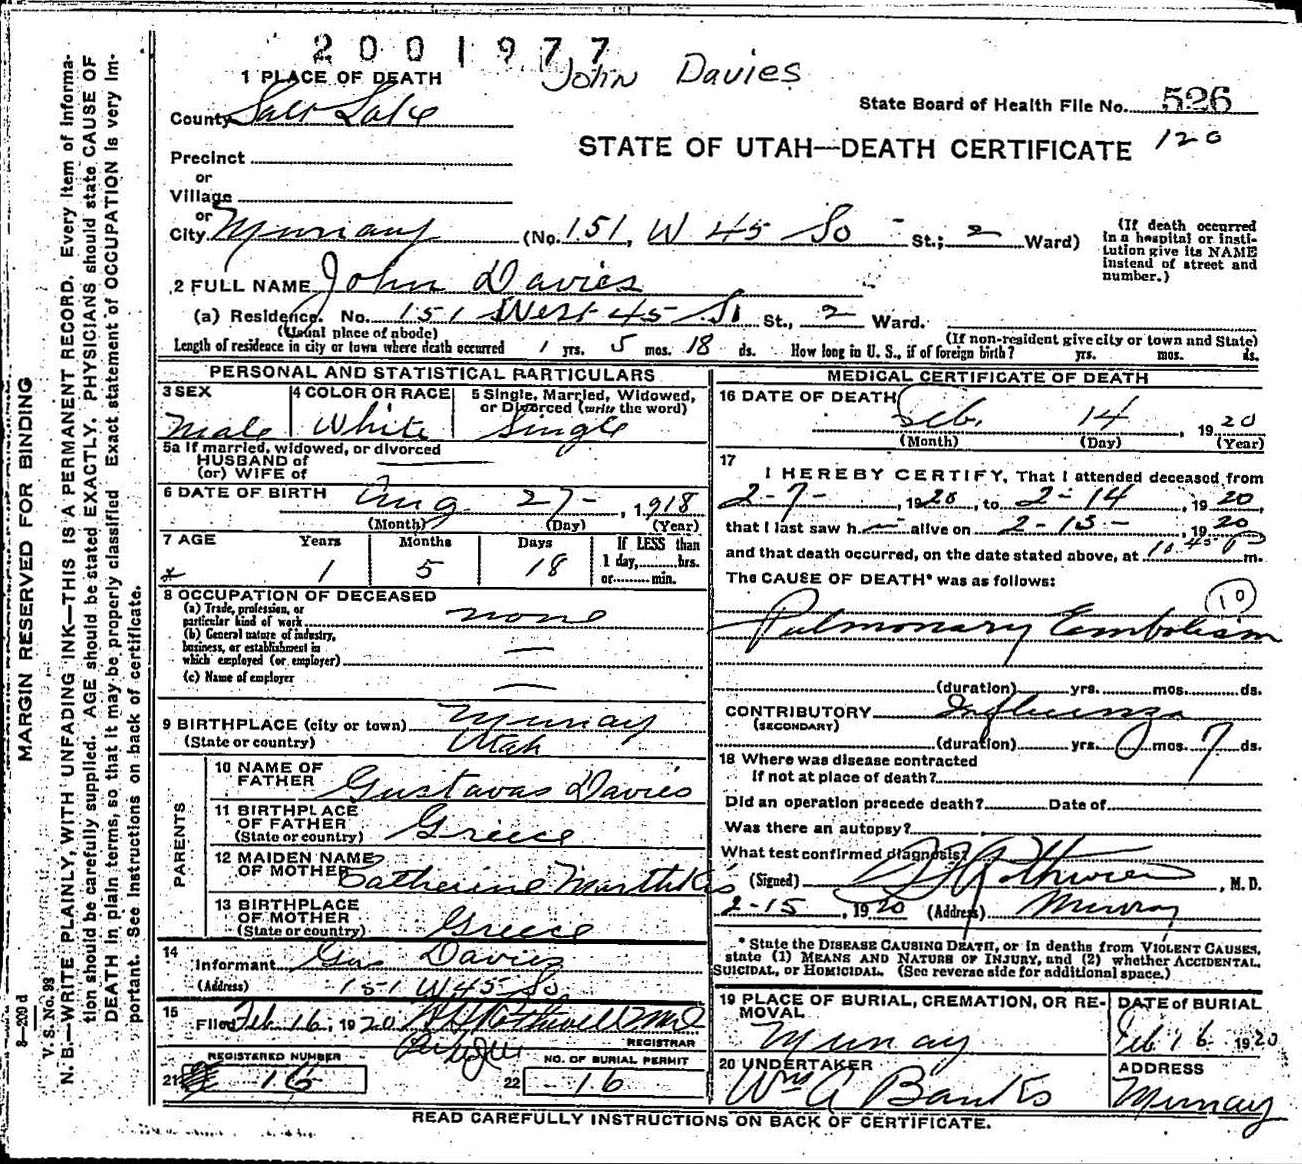 2001977
John Davies
1 PLACE OF DEATH
County Salt Lake
State Board of Health File No. 526
STATE OF UTAH—DEATH CERTIFICATE 120
Precinct
or
Village
or
City Murray (No. 151, W 45 So - St.; 2 Ward)
(If death occurred in a hospital or insti-
tution give its NAME
instead of street and
number.)
2 FULL NAME John Davies
(a) Residence. No. 151 West 45 So St., 2 Ward.
(Usual place of abode) (If non-resident give city or town and State)
Length of residence in city or town where death occurred 1 yrs. 5 mos. 18 ds. How long in U. S., if of foreign birth? yrs. mos. ds.
PERSONAL AND STATISTICAL PARTICULARS
3 SEX Male
4 COLOR OR RACE White
5 Single, Married, Widowed, or Divorced (write the word) Single
5a If married, widowed, or divorced
HUSBAND of
(or) WIFE of
6 DATE OF BIRTH Aug 27-, 1918
(Month) (Day) (Year)
7 AGE Years Months Days If LESS than
1 5 18 1 day,......hrs.
or......min.
8 OCCUPATION OF DECEASED
(a) Trade, profession, or
particular kind of work none
(b) General nature of industry,
business, or establishment in
which employed (or employer)
(c) Name of employer
9 BIRTHPLACE (city or town) Murray
(State or country) Utah
PARENTS
10 NAME OF FATHER Gustavas Davies
11 BIRTHPLACE OF FATHER (State or country) Greece
12 MAIDEN NAME OF MOTHER Catherine
13 BIRTHPLACE OF MOTHER (State or country) Greece
14 Informant Gus Davies
(Address) 151 W 45 So
15 Filed Feb 16, 1920 Rothwell MD
REGISTRAR
REGISTERED NUMBER
21 16
NO. OF BURIAL PERMIT
22 16
MEDICAL CERTIFICATE OF DEATH
16 DATE OF DEATH Feb. 14, 1920
(Month) (Day) (Year)
17 I HEREBY CERTIFY, That I attended deceased from
2-7-, 1920, to 2-14, 1920,
that I last saw h— alive on 2-13-, 1920
and that death occurred, on the date stated above, at 10.45 P m.
The CAUSE OF DEATH* was as follows:
10
Pulmonary Embolism
(duration) yrs. mos. ds.
CONTRIBUTORY Influenza
(SECONDARY)
(duration) yrs. 0 mos. 7 ds.
18 Where was disease contracted
If not at place of death?
Did an operation precede death? Date of
Was there an autopsy?
What test confirmed diagnosis?
(Signed) Rothwell, M. D.
2-15, 1920 (Address) Murray
* State the DISEASE CAUSING DEATH, or in deaths from VIOLENT CAUSES,
state (1) MEANS AND NATURE OF INJURY, and (2) whether ACCIDENTAL,
SUICIDAL, or HOMICIDAL. (See reverse side for additional space.)
19 PLACE OF BURIAL, CREMATION, OR RE-
MOVAL Murray
DATE of BURIAL
Feb 16 1920
20 UNDERTAKER
Wm A Banks
ADDRESS
Murray
READ CAREFULLY INSTRUCTIONS ON BACK OF CERTIFICATE.
MARGIN RESERVED FOR BINDING
N. B.—WRITE PLAINLY, WITH UNFADING INK—THIS IS A PERMANENT RECORD. Every item of informa-
tion should be carefully supplied. AGE should be stated EXACTLY. PHYSICIANS should state CAUSE OF
DEATH in plain terms, so that it may be properly classified. Exact statement of OCCUPATION is very im-
portant. See instructions on back of certificate.
8—209 d
V. S. No. 99